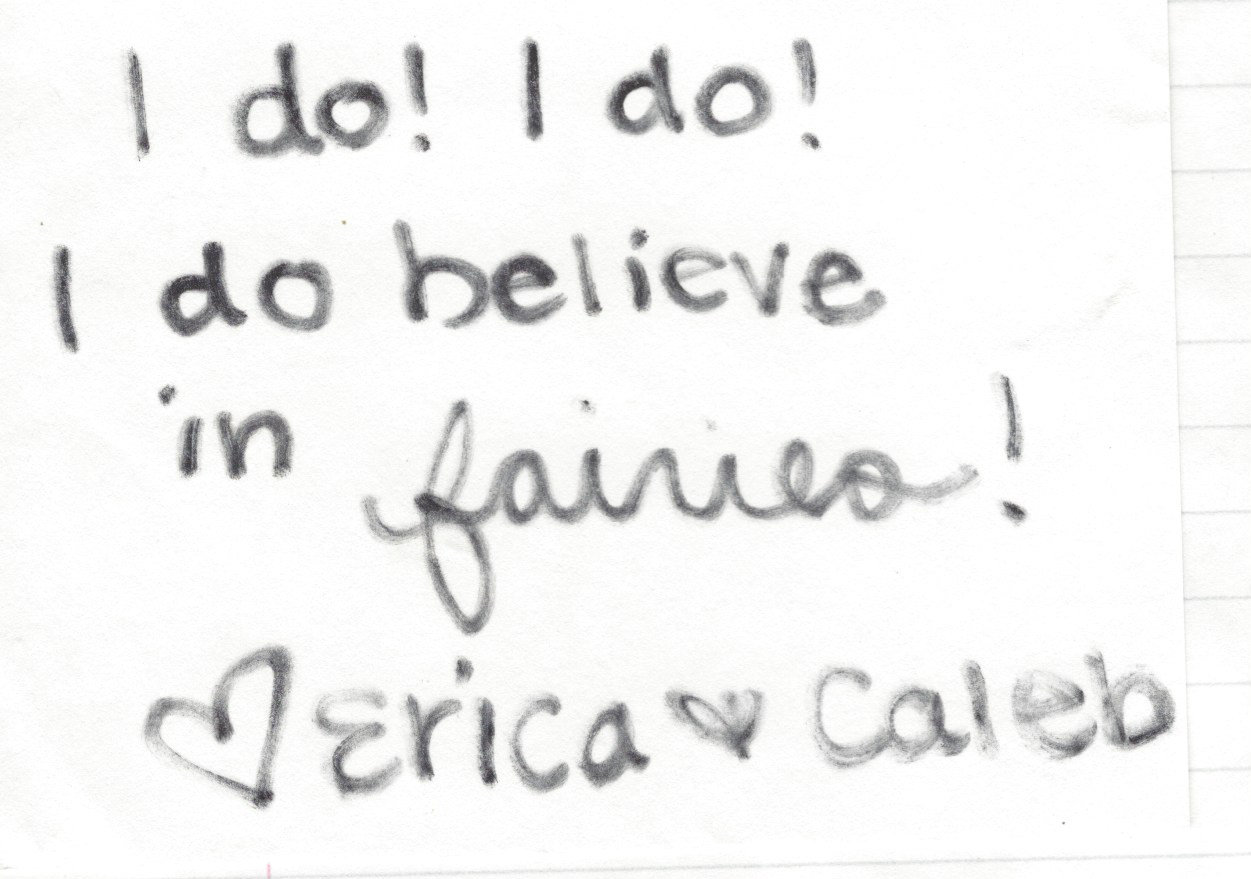 I do! I do!
I do believe
in fairies!
♡ Erica ♡ Caleb